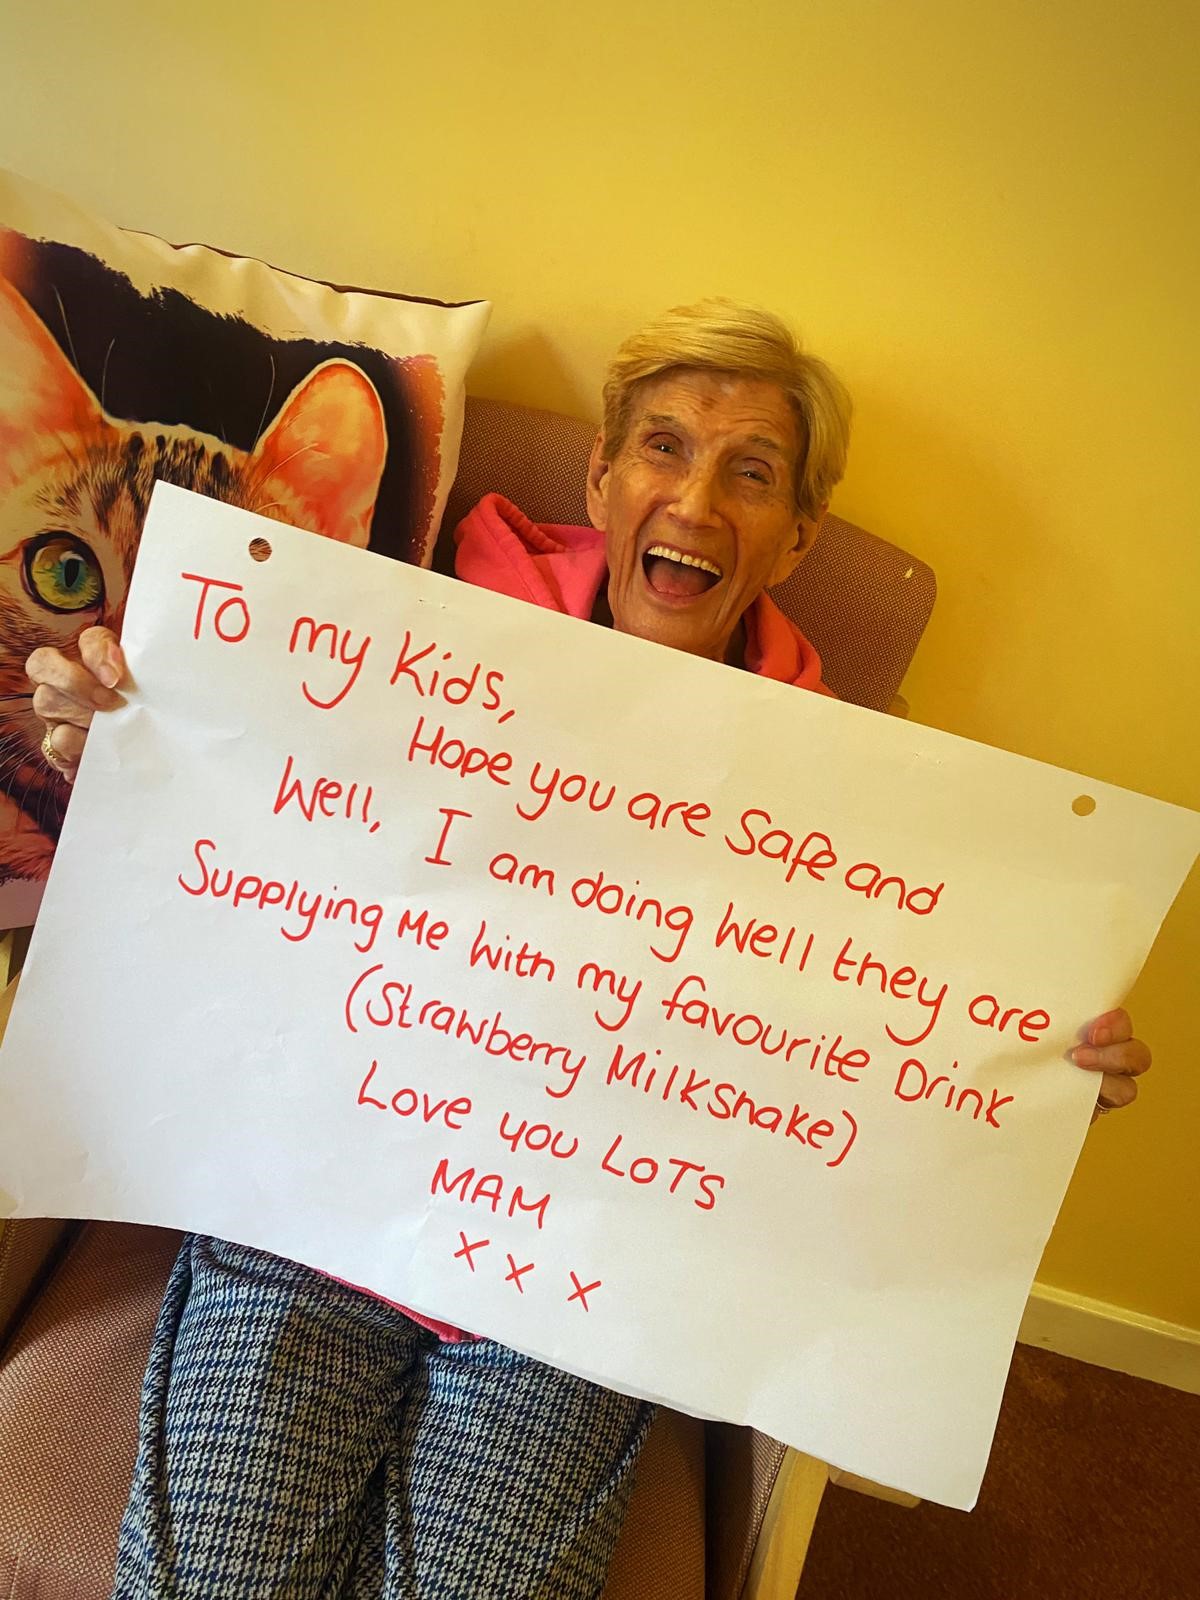 To my Kids,
Hope you are Safe and
Well, I am doing Well they are
Supplying Me With my favourite Drink
(Strawberry Milkshake)
Love you LOTS
MAM
x x x